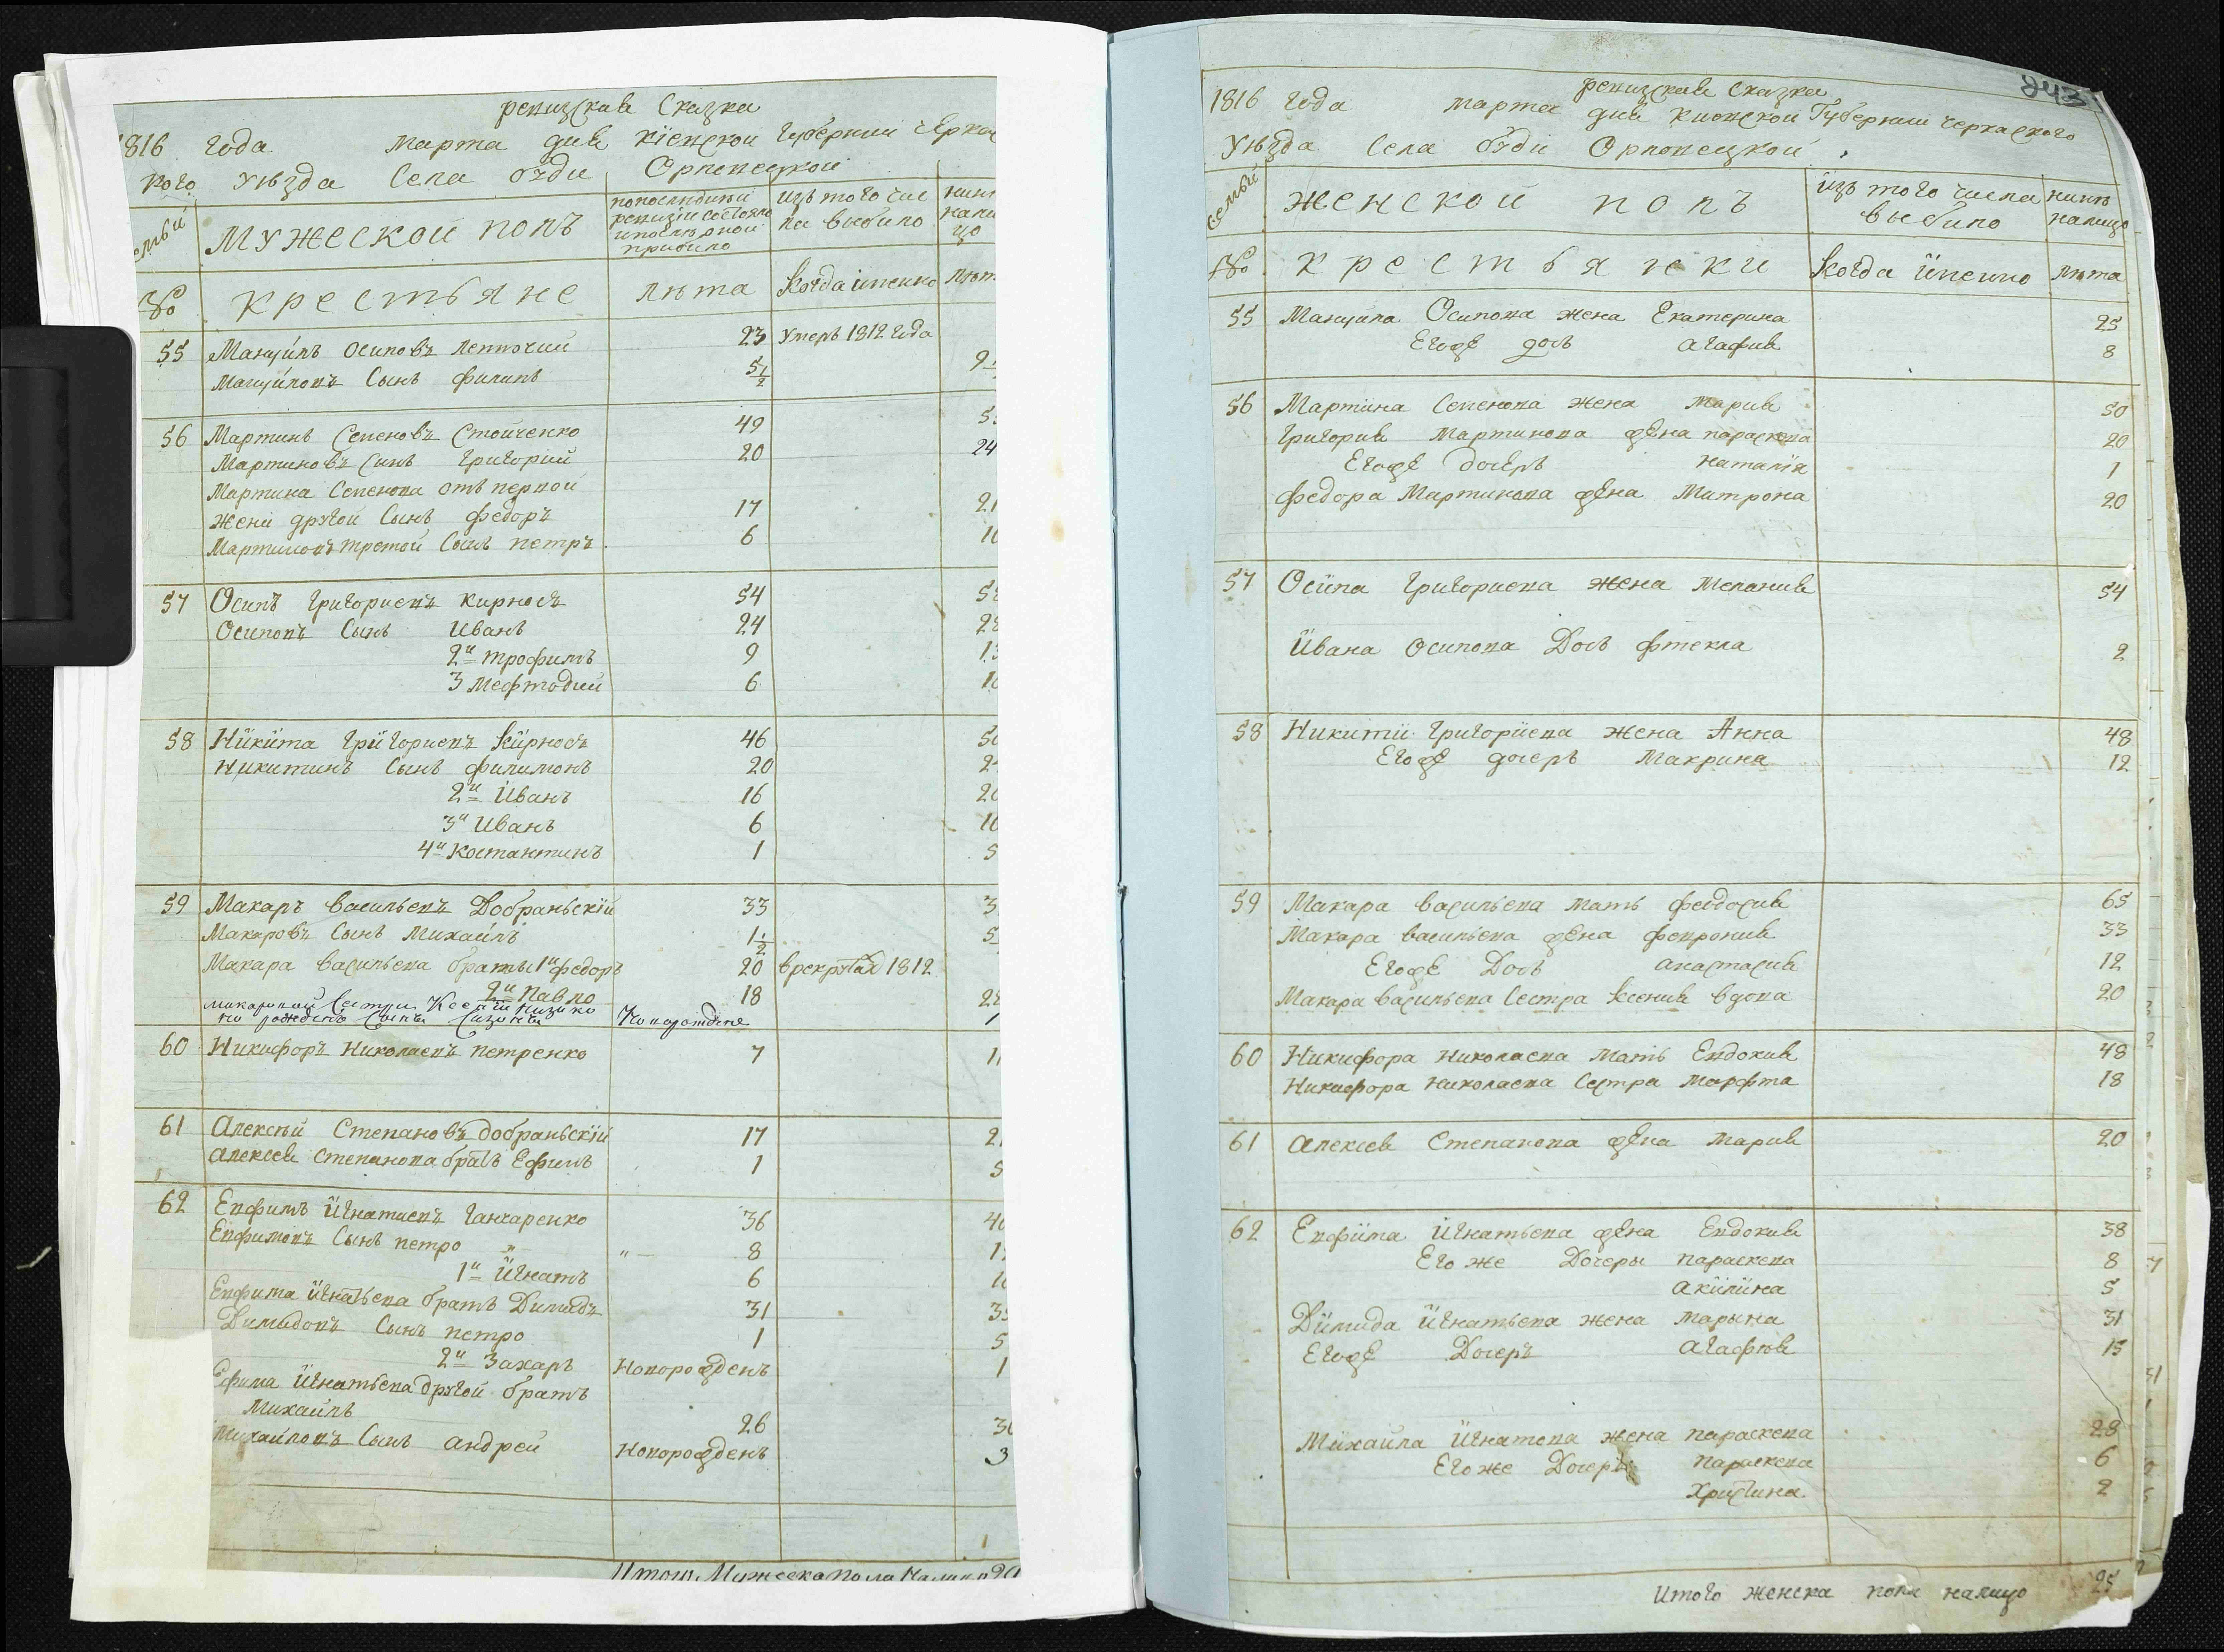 ревизская Сказка
1816 года марта дня Кіевской Губерніи Черкас
кого уѣзда Села Будіи Орловецкой
семьи
Мужеской полъ
по последней ревизіи состояло и после оной прибило
изъ того числа выбило
нинѣ налицо
№ Крестьяне
лѣта
Когда именно
лѣт
55 Мануйлъ Осиповъ 23 умеръ 1812 года
Мануйловъ Сынъ Филипъ 5 1/2 9
56 Мартинъ Семеновъ Стойченко 49 5
Мартиновъ Синъ Григорий 20 24
Мартина Семенова отъ первой
жени другой Сынъ Федоръ 17 21
Мартиновъ третой Сынъ петръ 6 10
57 Осипъ Григориевъ Кирносъ 54 58
Осиповъ Сынъ Иванъ 24 28
2й трофимъ 9 13
3 Мефтодий 6 10
58 Никита Григориевъ Кирносъ 46 50
Никитинъ Сынъ филимонъ 20 2
2й Иванъ 16 20
3й Иванъ 6 10
4й Костантинъ 1 5
59 Макаръ Васильевъ Добраньскій 33 3
Макаровъ Сынъ Михаилъ 1 1/2 5
Макара Васильева братьи 1й федоръ 20 в рекруты 1812
2й Павло 18 22
Макаровой Сестри Ксении
но рожденъ Сынъ Новорожденъ 1
60 Никифоръ Николаевъ петренко 7 11
61 Алексѣй Степановъ Добраньскій 17 21
Алексея Степанова братъ Ефимъ 1 5
62 Евфимъ Игнатиевъ Ганчаренко 36 40
Евфимовъ Сынъ петро „ „ 8 1
1й Игнатъ 6 10
Евфима Игнатьева братъ Димидъ 31 35
Димидовъ Сынъ петро 1 5
2й Захаръ Новорожденъ 1
Ефима Игнатьева другой братъ
Михаилъ 26 30
Михаиловъ Сынъ андрей Новорожденъ 3
Итого Мужеска пола налицо
243
ревизская Сказка
1816 года марта дня Киевской Губернии Черкаского
Уѣзда Села Будіи Орловецкой
семьи
Женской полъ
изъ того числа выбило
нинѣ налицо
№ Крестьянки
Когда именно
лѣта
55 Мануила Осипова жена Екатерина 25
Егоже дочь агафия 8
56 Мартина Семенова жена Мария 50
Григория Мартинова жена параскева 20
Егоже дочеръ наталія 1
Федора Мартинова жена Матрона 20
57 Осипа Григориева жена Мелания 54
Ивана Осипова Дочь фтекла 2
58 Никити Григориева жена Анна 48
Егоже дочеръ Макрина 12
59 Макара Васильева мать феодосия 65
Макара Васильева жена феврония 33
Егоже Дочь анастасия 12
Макара Васильева Сестра Ксения вдова 20
60 Никифора Николаева мать Евдокия 48
Никифора Николаева Сестра Марфта 18
61 Алексея Степанова жена Мария 20
62 Евфима Игнатьева жена Евдокия 38
Его же Дочеры параскева 8
акилина 5
Димида Игнатьева жена Марына 31
Егоже Дочеръ агафия 15
Михаила Игнатева жена параскева 28
Его же Дочеръ параскева 6
Христина 2
Итого женска пола налицо 25